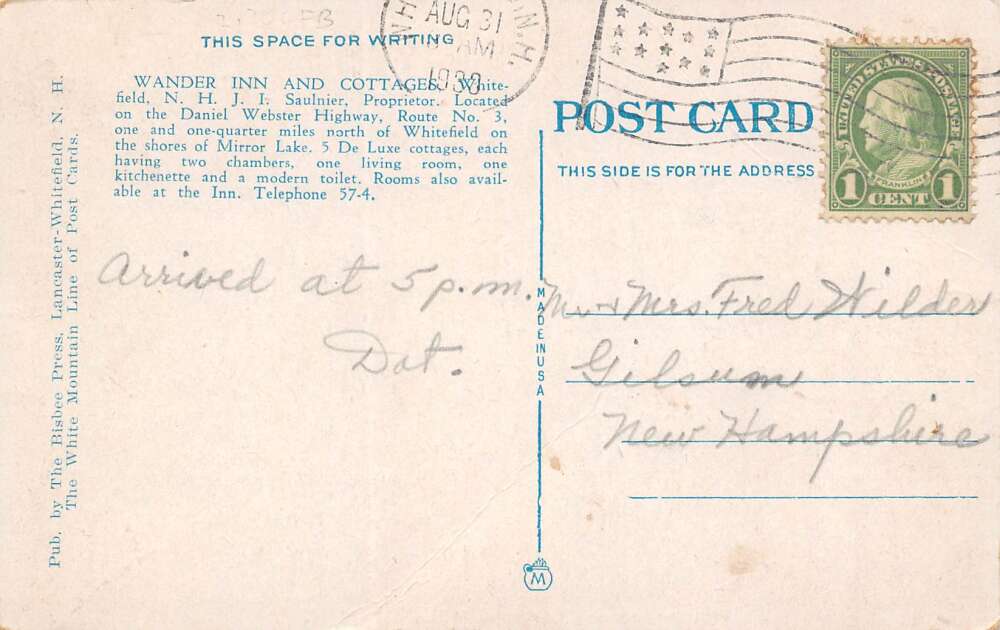 THIS SPACE FOR WRITING
WANDER INN AND COTTAGES, White-
field, N. H. J. I. Saulnier, Proprietor. Located
on the Daniel Webster Highway, Route No. 3,
one and one-quarter miles north of Whitefield on
the shores of Mirror Lake. 5 De Luxe cottages, each
having two chambers, one living room, one
kitchenette and a modern toilet. Rooms also avail-
able at the Inn. Telephone 57-4.
Arrived at 5 p.m.
Dot.
Pub. by The Bisbee Press, Lancaster-Whitefield, N. H.
The White Mountain Line of Post Cards.
MADE IN USA
M
AUG 31
AM
1930
N.H.
POST CARD
THIS SIDE IS FOR THE ADDRESS
UNITED STATES POSTAGE
FRANKLIN
1 CENT 1
Mr. & Mrs. Fred Wilder
Gilsum
New Hampshire